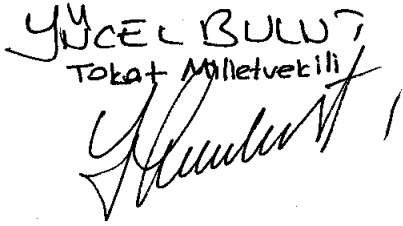 YÜCEL BULUT
Tokat Milletvekili